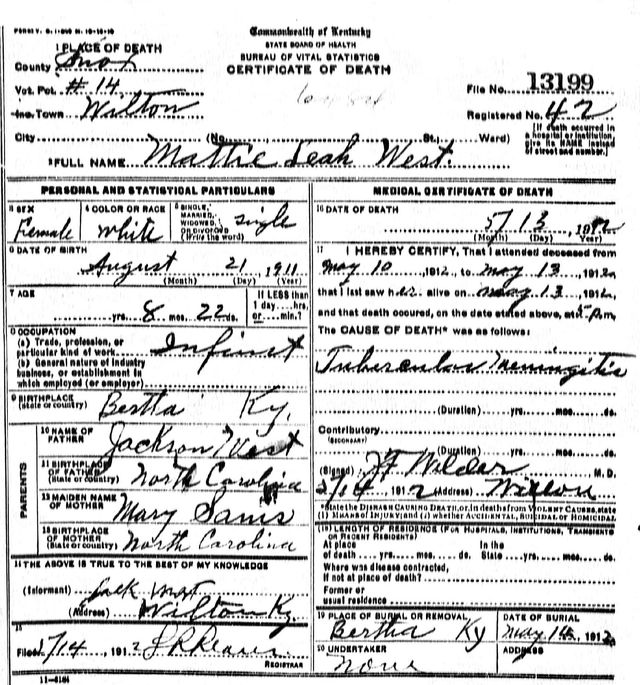 Commonwealth of Kentucky
STATE BOARD OF HEALTH
BUREAU OF VITAL STATISTICS
CERTIFICATE OF DEATH
1 PLACE OF DEATH
County Knox
Vot. Pct. #14
Inc. Town Wilton
File No. 13199
Registered No. 42
City (No. St., Ward)
[If death occurred in a hospital or institution, give its NAME instead of street and number.]
2 FULL NAME Mattie Leah West.
PERSONAL AND STATISTICAL PARTICULARS
3 SEX Female
4 COLOR OR RACE White
5 SINGLE, MARRIED, WIDOWED, OR DIVORCED (Write the word) Single
6 DATE OF BIRTH
August 21, 1911
(Month) (Day) (Year)
7 AGE
yrs. 8 mos. 22 ds.
If LESS than 1 day...hrs. or...min.?
8 OCCUPATION
(a) Trade, profession, or particular kind of work Infinet
(b) General nature of industry business, or establishment in which employed (or employer)
9 BIRTHPLACE (State or country) Bertha Ky.
PARENTS
10 NAME OF FATHER Jackson West
11 BIRTHPLACE OF FATHER (State or country) North Carolina
12 MAIDEN NAME OF MOTHER Mary Sams
13 BIRTHPLACE OF MOTHER (State or country) North Carolina
14 THE ABOVE IS TRUE TO THE BEST OF MY KNOWLEDGE
(Informant) Jack West
(Address) Wilton Ky.
15
Filed 5/14, 1912
REGISTRAR
11-5184
MEDICAL CERTIFICATE OF DEATH
16 DATE OF DEATH
5/13, 1912
(Month) (Day) (Year)
17 I HEREBY CERTIFY, That I attended deceased from
May 10, 1912, to May 13, 1912,
that I last saw her alive on May 13, 1912,
and that death occured, on the date stated above, at 5 P.m.
The CAUSE OF DEATH* was as follows:
Tubercular Meningitis
(Duration) yrs. mos. ds.
Contributory
(SECONDARY)
(Duration) yrs. mos. ds.
(Signed) Wilder M. D.
5/14 1912 (Address) Wilton
*State the DISEASE CAUSING DEATH, or, in deaths from VIOLENT CAUSES, state (1) MEANS OF INJURY; and (2) whether ACCIDENTAL, SUICIDAL OR HOMICIDAL
(18) LENGTH OF RESIDENCE (FOR HOSPITALS, INSTITUTIONS, TRANSIENTS OR RECENT RESIDENTS)
At place of death yrs. mos. ds. In the State yrs. mos. ds.
Where was disease contracted, if not at place of death?
Former or usual residence
19 PLACE OF BURIAL OR REMOVAL Bertha Ky
DATE OF BURIAL May 14, 1912
20 UNDERTAKER None
ADDRESS